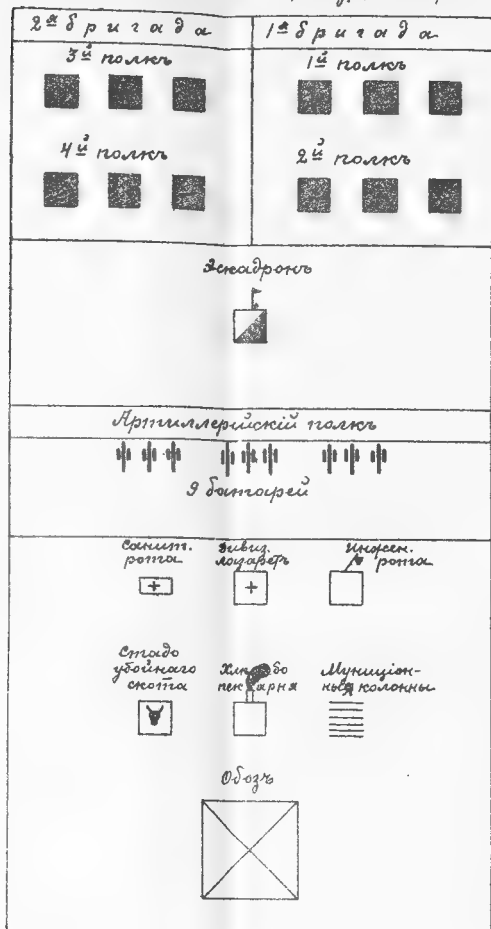 2ая бригада
1ая бригада
3й полкъ
1й полкъ
4й полкъ
2й полкъ
Эскадронъ
Артиллерійскій полкъ
9 батарей
Санит.
рота
Дивиз.
лазаретъ
Инжен.
рота
Стадо
убойнаго
скота
Хлѣбо
пекарня
Муниціон-
ныя колонны
Обозъ